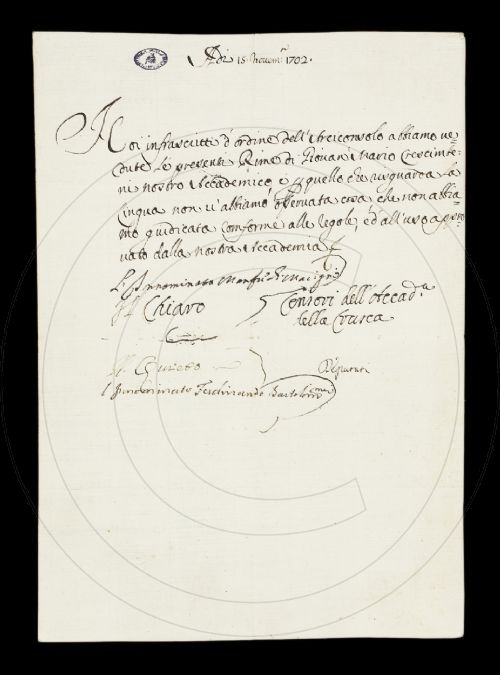 Adi 15 Novem. 1702.
Noi infrascritti d'ordine dell'Arciconsolo abbiamo ve=
dute le presenti Rime di Giovan Mario Crescimbe=
ni nostro Accademico, e p quello che risguarda la
Lingua non v'abbiamo osservata cosa che non abbia=
mo giudicata conforme alle regole, ed all'uso appro
vato dalla nostra Accademia
L'Innominato
Il Chiaro
Censori dell'Accad.a
della Crusca
Deputati
L'Innominato Ferdinando Bartolommei